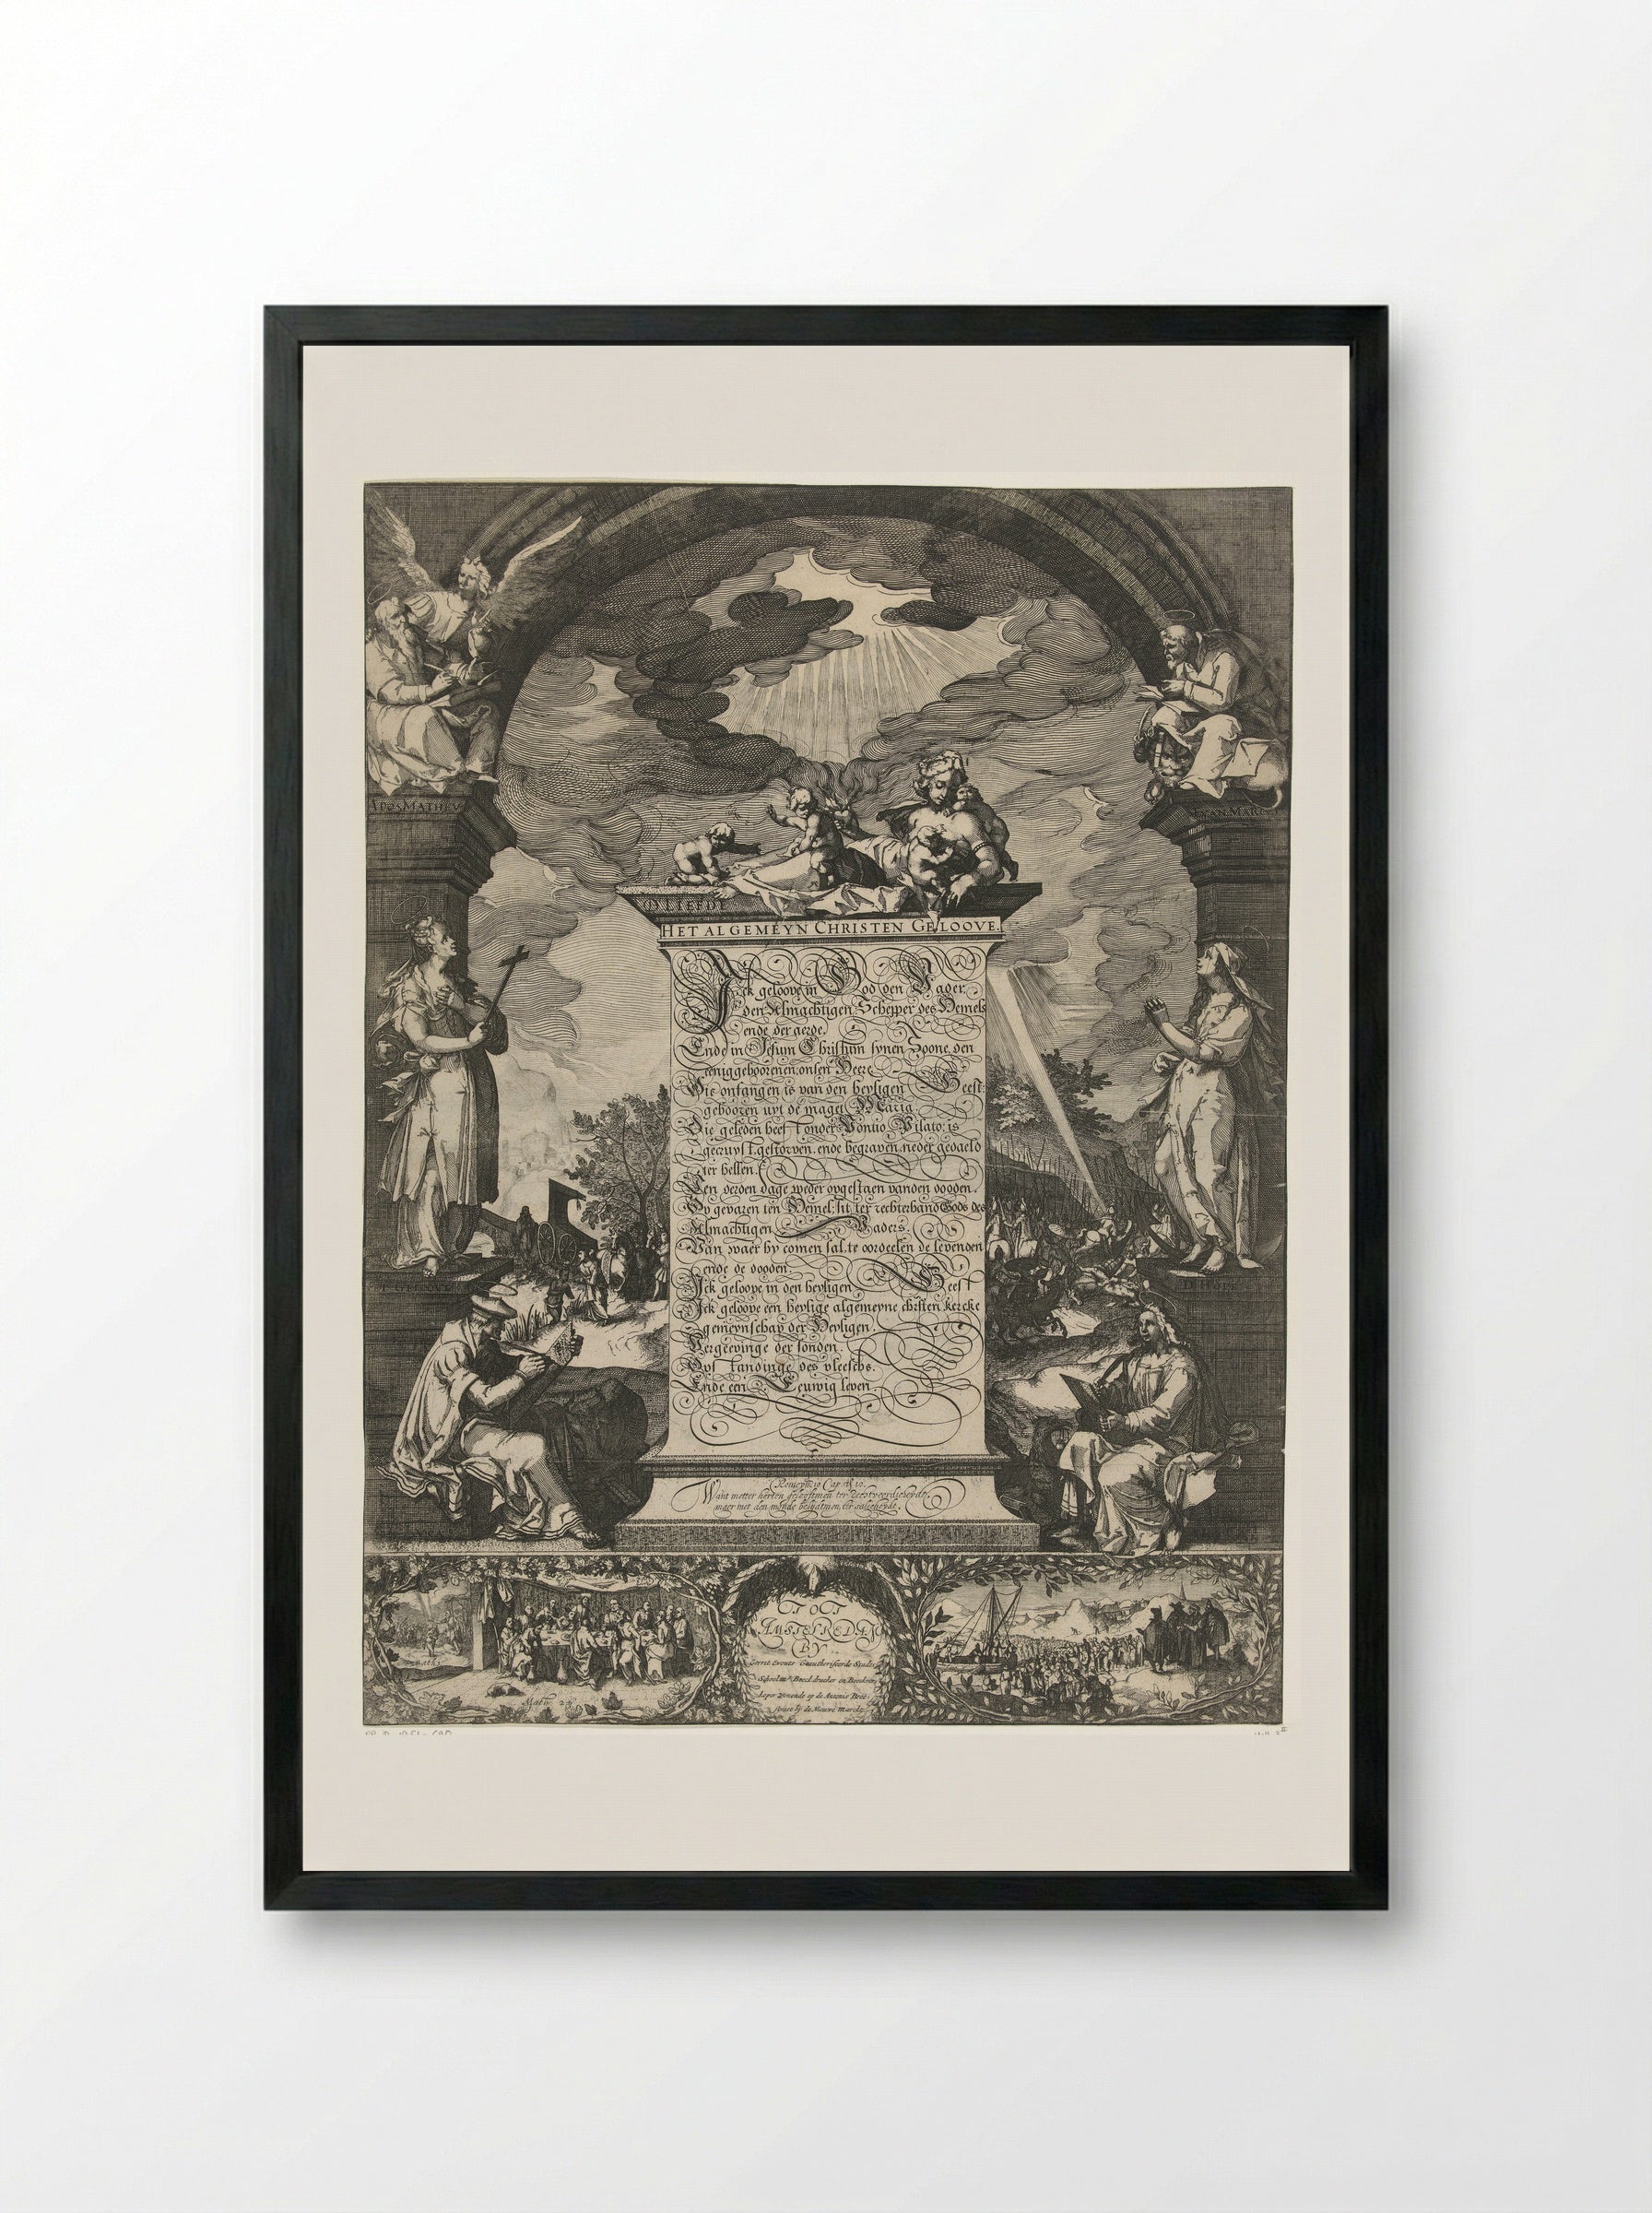 APOS MATHEVS
EVAN MARCVS
D LIEFDE
HET ALGEMEYN CHRISTEN GELOOVE.
Ick geloove in God den Vader,
den Almachtigen Schepper des Hemels
ende der aerde.
Ende in Jesum Christum synen Zoone, den
eeniggeboorenen, onsen Heere
Die ontfangen is van den heyligen Geest
gebooren uyt de maget Maria.
Die geleden heeft onder Pontio Pilato: is
gecruyst, gestorven, ende begraven, neder gedaeld
ter hellen.
Ten derden dage weder opgestaen vanden dooden.
Op gevaren ten Hemel: sit ter rechterhand Gods des
Almachtigen Vaders.
Van waer hy comen sal, te oordeelen de levenden
ende de dooden
Ick geloove in den heyligen Geest
Ick geloove een heylige algemeyne christen kercke
gemeynschap der Heyligen
Vergeevinge der sonden.
Opstandinge des vleeschs.
Ende een Eeuwig leven.
Romeynen 10 Cap
Want metter herten gelooftmen ter
maer met den monde belydtmen ter salicheydt.
Math: 26
TOT
AMSTELREDAM
BY